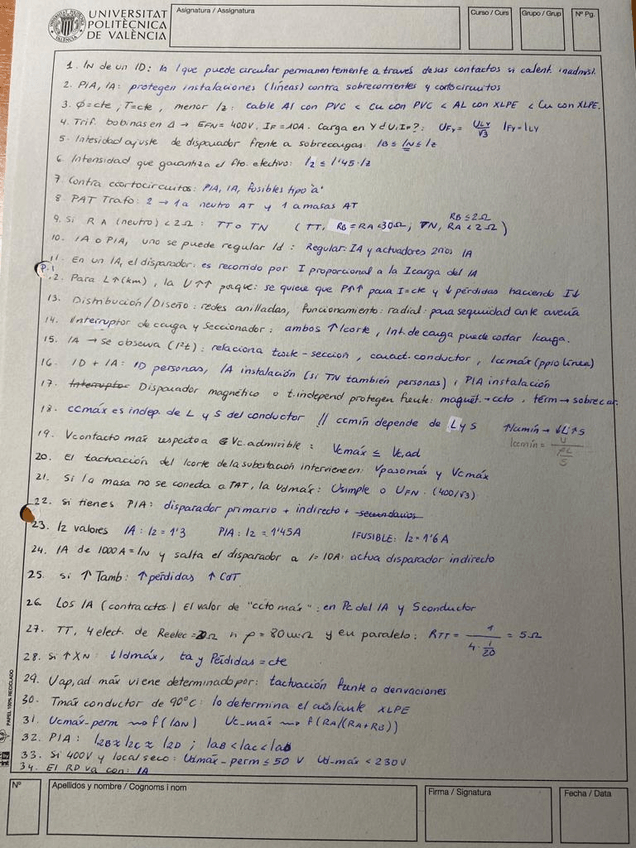 UNIVERSITAT
POLITÈCNICA
DE VALÈNCIA
Asignatura / Assignatura
Curso / Curs
Grupo / Grup
Nº Pg.
1. IN de un ID: la I que puede circular permanentemente a través de sus contactos si calent. inadmisi.
2. PIA, IA: protegen instalaciones (líneas) contra sobrecorrientes y cortocircuitos
3. Ø=cte, T=cte, menor Iz: cable Al con PVC < Cu con PVC < AL con XLPE < Cu con XLPE.
4. Trif. bobinas en Δ → EFN = 400V, IF = 10A. Carga en Y d U, IF?: UFY = ULY/√3 IFY=ILY
5. Intesidad ajuste de disparador frente a sobrecargas: IB ≤ IN ≤ Iz
6. Intensidad que garantiza el fto. efectivo: I2 ≤ 1'45·Iz
7 Contra ccortocircuitos: PIA, IA, fusibles tipo "a"
8 PAT Trafo: 2 → 1 a neutro AT y 1 a masas AT
9. Si RA (neutro) < 2Ω: TT o TN (TT, RB = RA < 30Ω; TN, RA < 2Ω) RB ≤ 2Ω
10. IA o PIA, uno se puede regular Id: Regular: IA y actuadores 2rios IA
11. En un IA, el disparador: es recorrido por I proporcional a la I carga del IA
12. Para L↑(km), la U↑↑ porque: se quiere que P↑↑ para I=cte y ↓ pérdidas haciendo I↓
13. Distribución/Diseño: redes anilladas, funcionamiento: radial: para seguridad ante avería
14. Interruptor de carga y Seccionador: ambos ↑Icorte, Int. de carga puede cortar Icarga.
15. IA → Se observa (I²t): relaciona tcorte - sección, caract. conductor, Iccmáx (ppio línea)
16. ID + IA: ID personas, IA instalación (si TN también personas); PIA instalación
17. Interruptor Disparador magnético o t.independ protegen frente: magnét. → ccto, térm → sobrecar.
18. ccmáx es indep. de L y S del conductor // ccmín depende de L y S ↑Iccmín → ↓L ↑S
19. Vcontacto máx respecto a Vc.admisible: Vcmáx ≤ Vc,ad Iccmín = U / (ρL/S)
20. El tactuación del Icorte de la subestación intervienen: Vpasomáx y Vcmáx
21. Si la masa no se conecta a TAT, la Udmáx: Usimple o UFN. (400/√3)
22. Si tienes PIA: disparador primario + indirecto + secundarios
23. I2 valores IA: I2 = 1'3 PIA: I2 = 1'45A IFUSIBLE: I2 = 1'6 A
24. IA de 1000A = IN y salta el disparador a I = 10A: actua disparador indirecto
25. Si ↑Tamb: ↑pérdidas ↑CdT
26. Los IA (contra cctos) El valor de "ccto máx": en Pc del IA y Sconductor
27. TT, 4 elect. de Reelec = 20Ω n ρ = 80 Ωm y en paralelo: RTT = 1 / (4·1/20) = 5Ω
28. Si ↑XN: ↓Idmáx, ta y Pérdidas = cte
29. Uap,ad máx viene determinado por: tactuación frente a derivaciones
30. Tmáx conductor de 90°C: lo determina el aislante XLPE
31. Ucmáx-perm ⟿ f(IΔN) Uc-máx ⟿ f(RA/(RA+RB))
32. PIA: I2B ≈ I2C ≈ I2D; IaB < IaC < IaD
33. Si 400V y local seco: Udmáx-perm ≤ 50 V Ud-máx < 230V
34. El RD va con: IA
PAPEL 100% RECICLADO
Nº
Apellidos y nombre / Cognoms i nom
Firma / Signatura
Fecha / Data